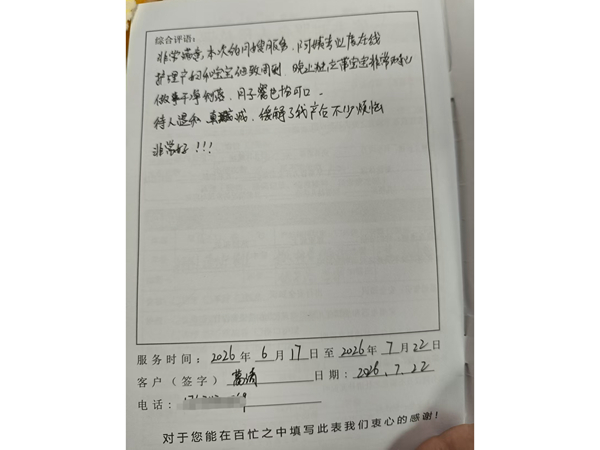 综合评语:
非常满意本次的月嫂服务,阿姨专业度在线
护理产妇和宝宝细致周到,晚上独立带宝宝非常用心
做事干净利落,月子餐色怡可口.
待人温和 真诚,缓解了我产后不少烦恼
非常好!!!
服务时间:2026年6月17日至2026年7月22日
客户(签字) 日期:2026.7.22
电话:
对于您能在百忙之中填写此表我们衷心的感谢!